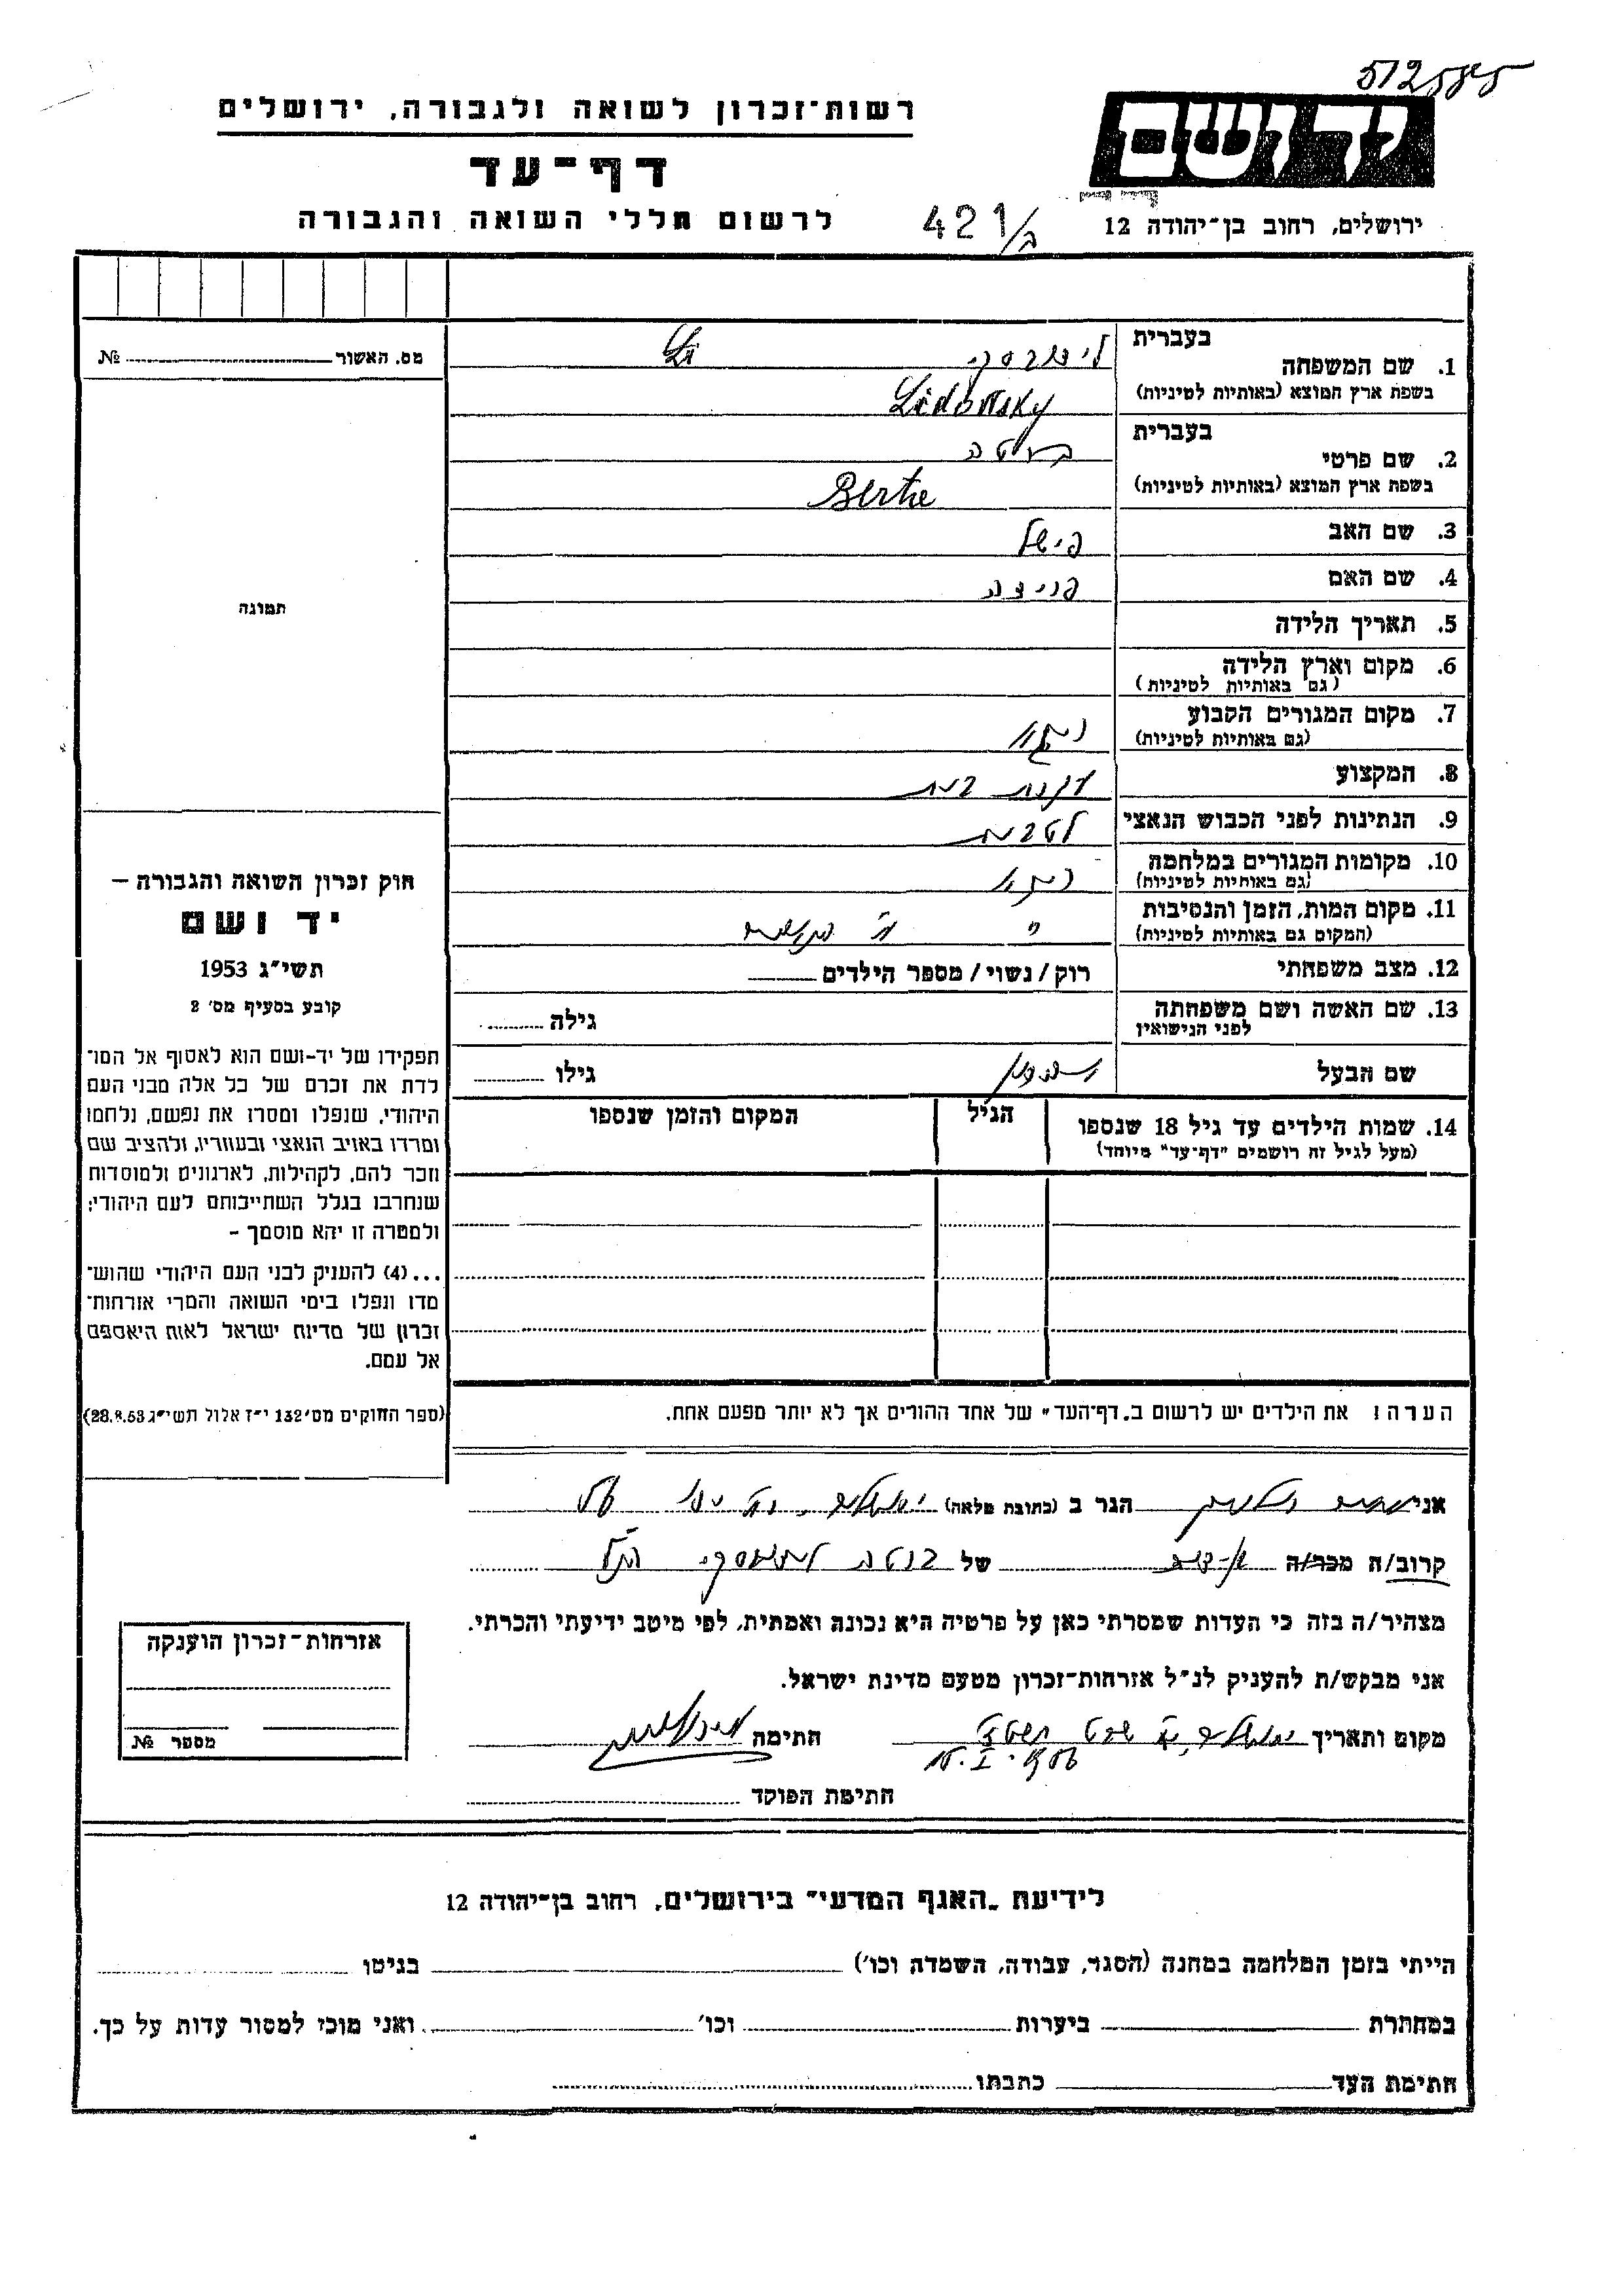 512585
רשות־זכרון לשואה ולגבורה, ירושלים
דף־עד
לרשום חללי השואה והגבורה
421/ב
יד ושם
ירושלים, רחוב בן־יהודה 12
מס. האשור № 
בעברית
1. שם המשפחה לידובסקי Li
בשפת ארץ המוצא (באותיות לטיניות) Lidowsky
בעברית
2. שם פרטי ברטה
בשפת ארץ המוצא (באותיות לטיניות) Berta
3. שם האב פישל
4. שם האם
תמונה
5. תאריך הלידה
6. מקום וארץ הלידה
(גם באותיות לטיניות)
7. מקום המגורים הקבוע
(גם באותיות לטיניות)
8. המקצוע עקרת בית
9. הנתינות לפני הכבוש הנאצי לטבית
10. מקומות המגורים במלחמה
(גם באותיות לטיניות)
11. מקום המות, הזמן והנסיבות
(המקום גם באותיות לטיניות)
12. מצב משפחתי רוק / נשוי / מספר הילדים
13. שם האשה ושם משפחתה גילה
לפני הנישואין
שם הבעל גילו
14. שמות הילדים עד גיל 18 שנספו הגיל המקום והזמן שנספו
(מעל לגיל זה רושמים "דף־עד" מיוחד)
הערה: את הילדים יש לרשום ב„דף־העד" של אחד ההורים אך לא יותר מפעם אחת.
חוק זכרון השואה והגבורה –
יד ושם
תשי"ג 1953
קובע בסעיף מס' 2
תפקידו של יד-ושם הוא לאסוף אל המו־
לדת את זכרם של כל אלה מבני העם
היהודי, שנפלו ומסרו את נפשם, נלחמו
ומרדו באויב הנאצי ובעוזריו, ולהציב שם
וזכר להם, לקהילות, לארגונים ולמוסדות
שנחרבו בגלל השתייכותם לעם היהודי;
ולמטרה זו יהא מוסמך –
...(4) להעניק לבני העם היהודי שהוש־
מדו ונפלו בימי השואה והמרי אזרחות־
זכרון של מדינת ישראל לאות היאספם
אל עמם.
(ספר החוקים מס' 132 י"ז אלול תשי"ג 28.8.53)
אני הגר ב (כתובת מלאה) ירושלים,
קרוב/ה מכר/ה של ברטה לידובסקי הנ"ל
מצהיר/ה בזה כי העדות שמסרתי כאן על פרטיה היא נכונה ואמתית, לפי מיטב ידיעתי והכרתי.
אני מבקש/ת להעניק לנ"ל אזרחות־זכרון מטעם מדינת ישראל.
מקום ותאריך ירושלים, שבט חתימה
חתימת הפוקד
אזרחות־זכרון הוענקה
מספר №
לידיעת „האגף המדעי" בירושלים, רחוב בן־יהודה 12
הייתי בזמן המלחמה במחנה (הסגר, עבודה, השמדה וכו') בגיטו
במחתרת ביערות וכו' ואני מוכן למסור עדות על כך.
חתימת העד כתבתו